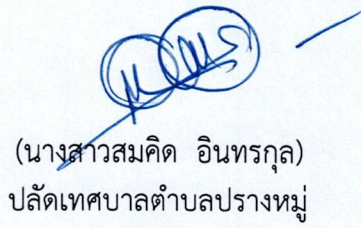 (นางสาวสมคิด  อินทรกุล)
ปลัดเทศบาลตำบลปรางหมู่